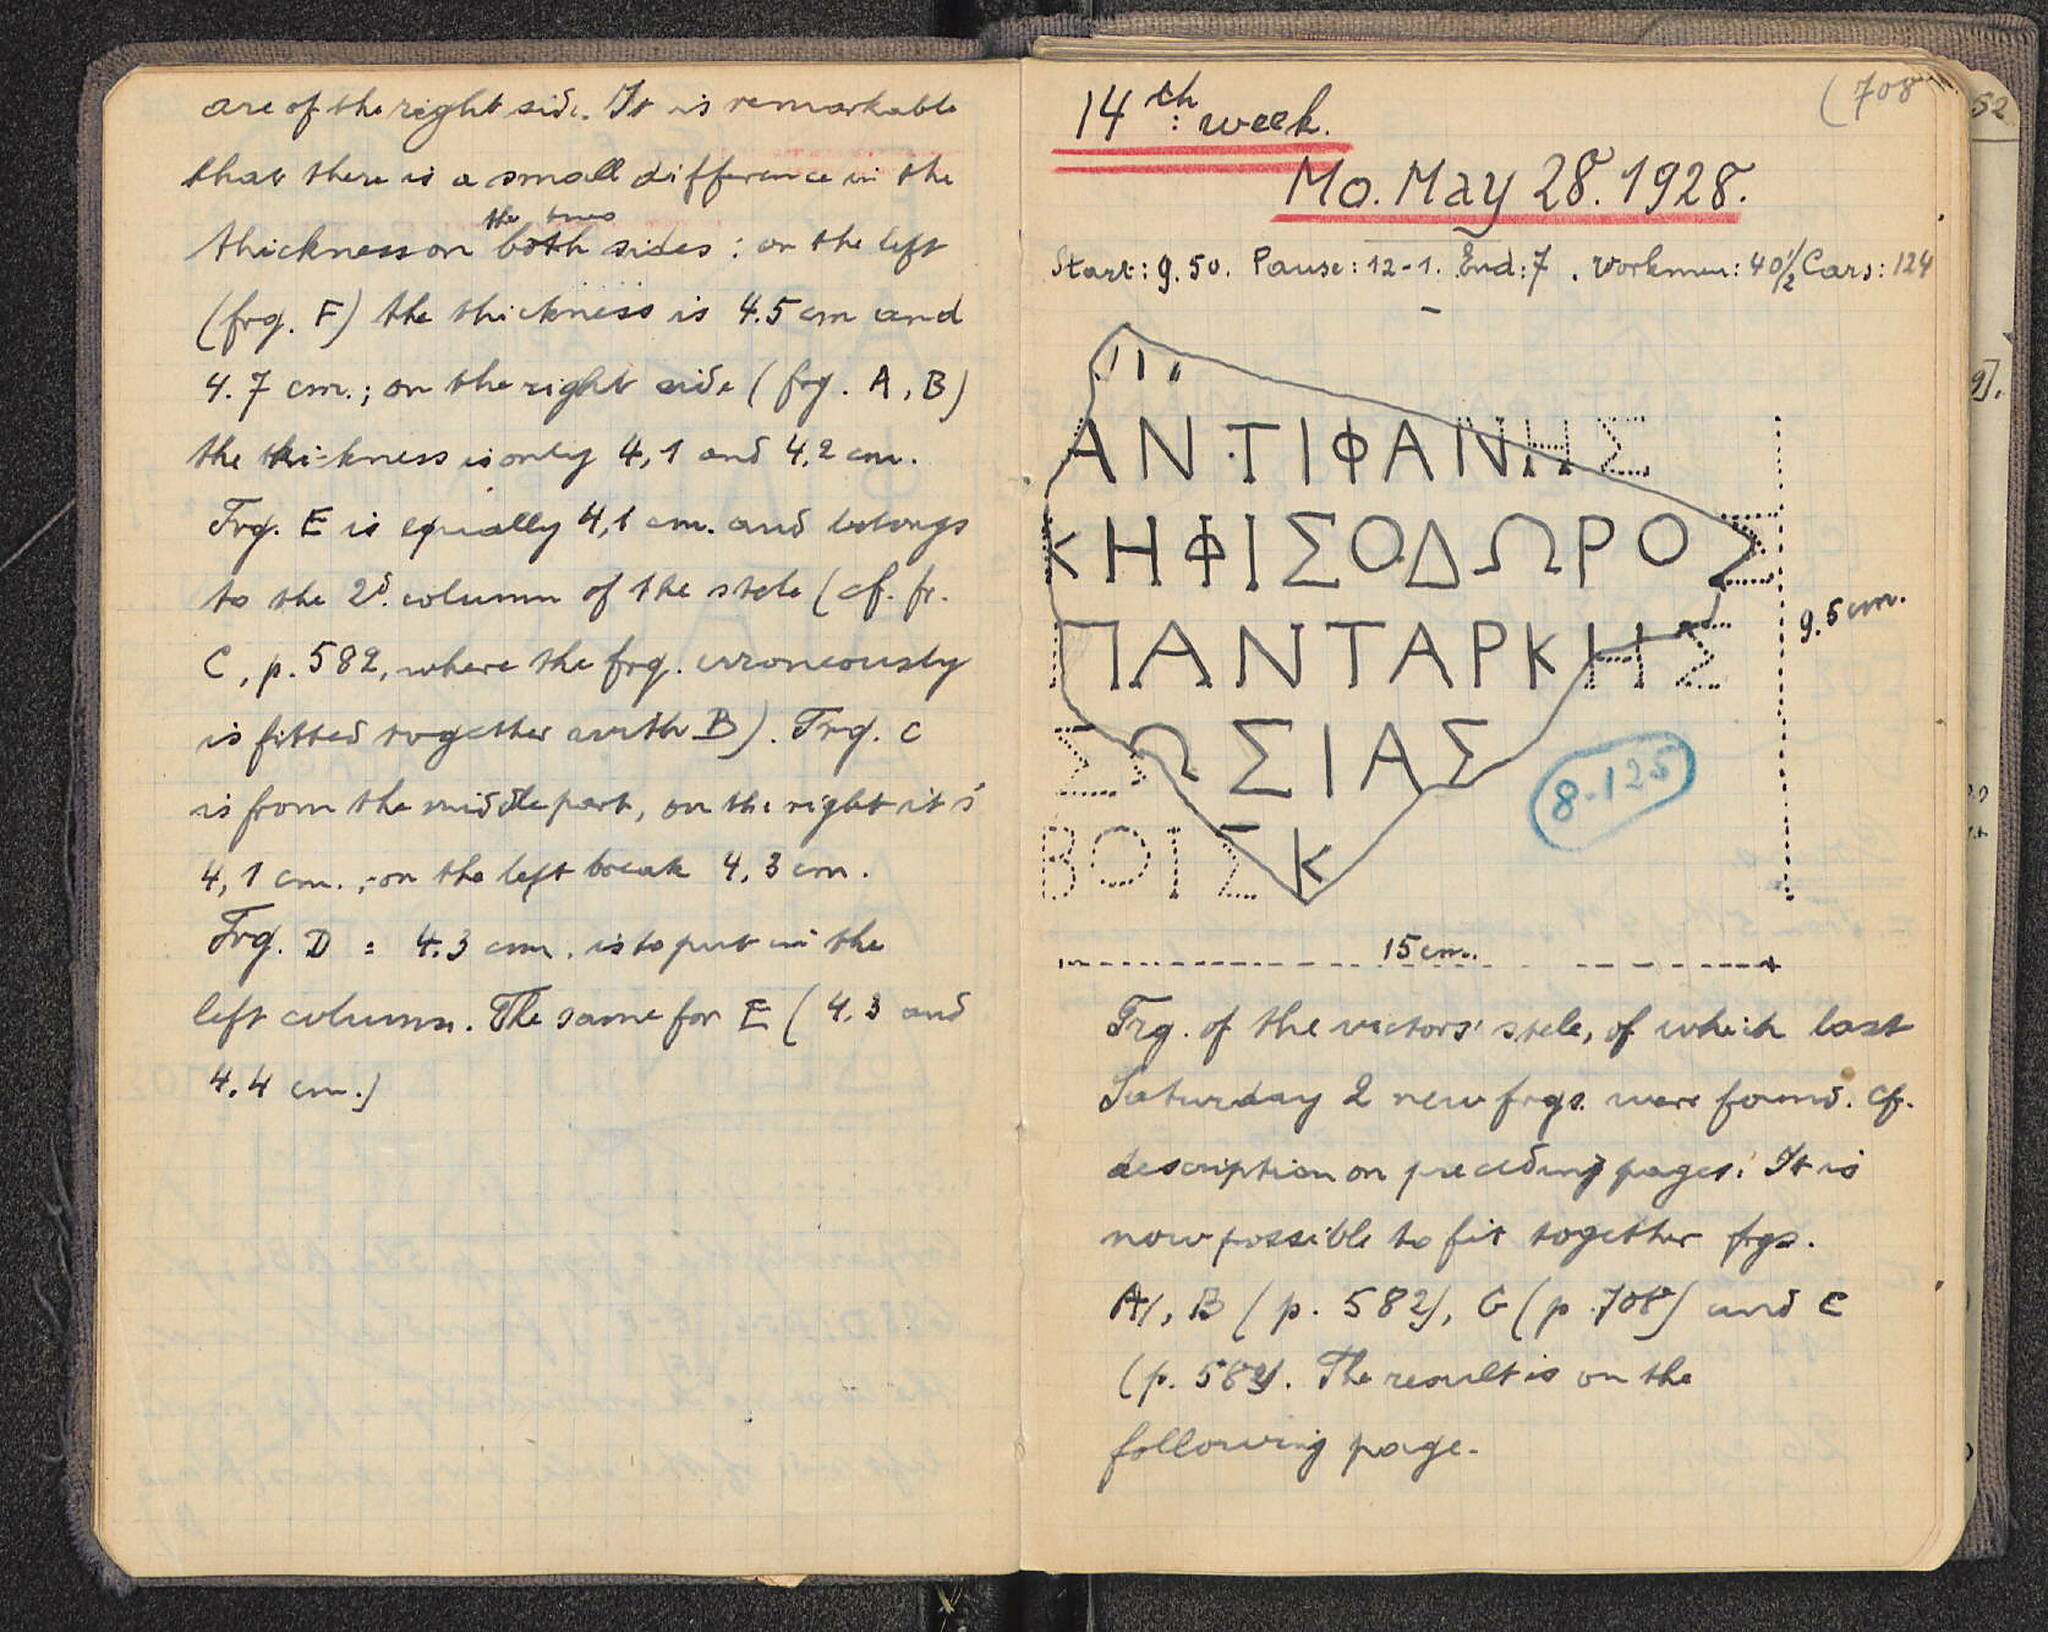 are of the right side. It is remarkable
that there is a small difference in the
the two
thickness on both sides: on the left
(frg. F) the thickness is 4.5 cm and
4.7 cm.; on the right side (frg. A, B)
the thickness is only 4,1 and 4,2 cm.
Frg. E is equally 4,1 cm. and belongs
to the 2d. column of the stele (cf. fr.
C, p. 582, where the frg. erroneously
is fitted together with B). Frg. C
is from the middle part, on the right it is
4,1 cm., on the left break 4,3 cm.
Frg. D = 4.3 cm. is to put in the
left column. The same for E (4.3 and
4.4 cm.)
(708
14th: week.
Mo. May 28. 1928.
Start: 9.50. Pause: 12-1. End: 7. Workmen: 40 1/2 Cars: 124
ΑΝΤΙΦΑΝΗΣ
ΚΗΦΙΣΟΔΩΡΟΣ
9.5 cm.
ΠΑΝΤΑΡΚΗΣ
ΣΩΣΙΑΣ
8-125
ΒΟΙΣΚ
15 cm.
Frg. of the victors' stele, of which last
Saturday 2 new frgs. were found. Cf.
description on preceding pages. It is
now possible to fit together frgs.
A, B (p. 582), G (p. 708) and C
(p. 582). The result is on the
following page.
52